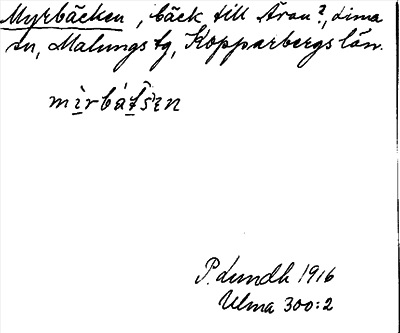 Myrbäcken, bäck till Åran?, Lima
sn, Malungs tg, Kopparbergs län.
mı̀rbátšın
P. Lundh 1916
Ulma 300:2